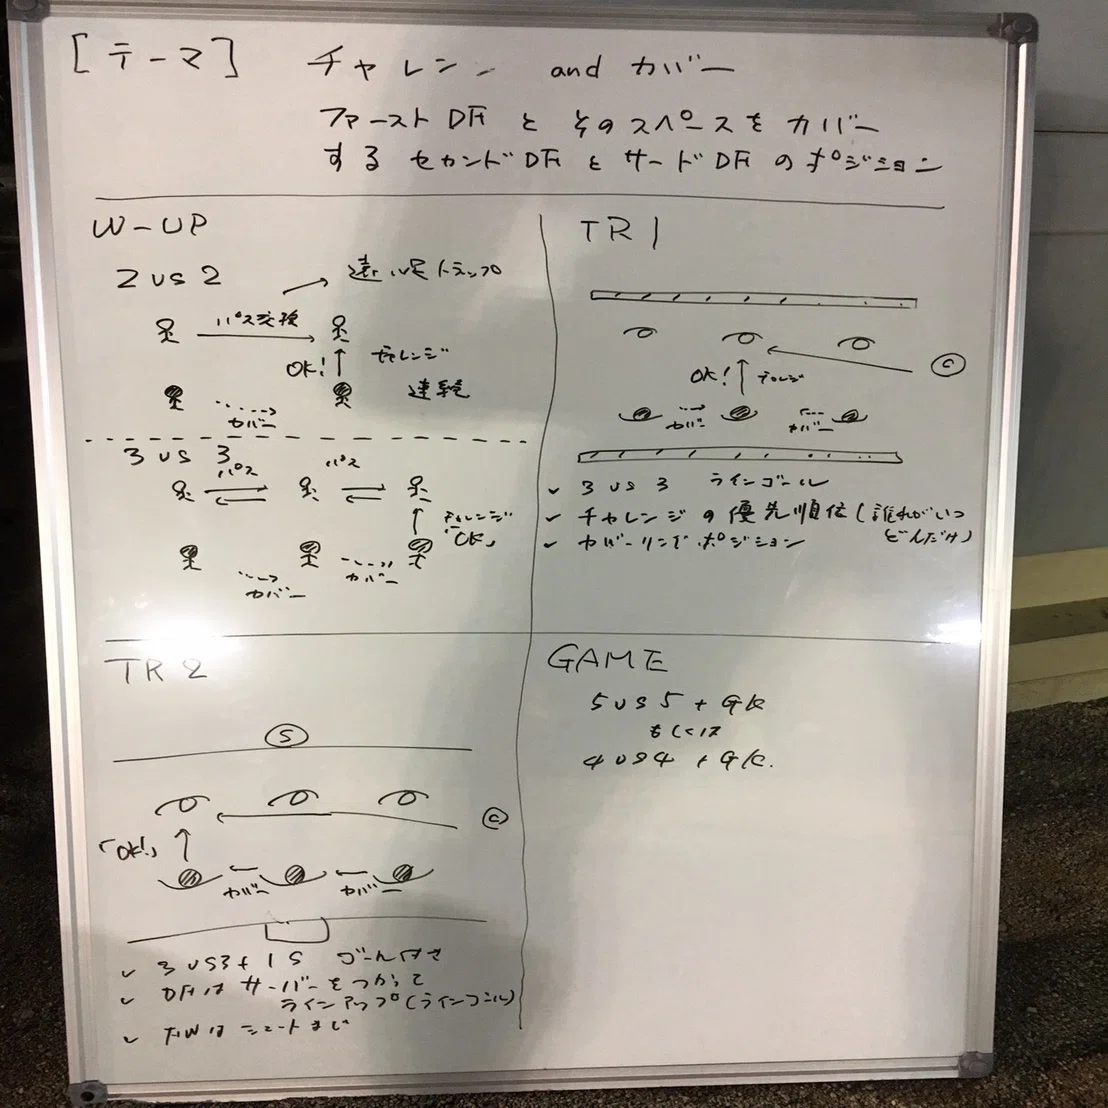 [テーマ] チャレンジ and カバー
ファーストDFとそのスペースをカバー
するセカンドDFとサードDFのポジション
W-UP
2 vs 2
遠い足トラップ
パス交換
OK! チャレンジ
連続
カバー
3 vs 3
パス パス
チャレンジ
「OK」
カバー カバー
TR1
C
OK! チャレンジ
カバー カバー
✓ 3 vs 3 ラインゴール
✓ チャレンジの優先順位(誰れがいつ
どんだけ)
✓ カバーリングポジション
TR2
S
C
「OK!」
カバー カバー
✓ 3 vs 3+1S ゴール付き
✓ DFはサーバーをつかって
ラインアップ(ラインゴール)
✓ FWはシュートまで
GAME
5 vs 5 + GK
もしくは
4 vs 4 + GK.